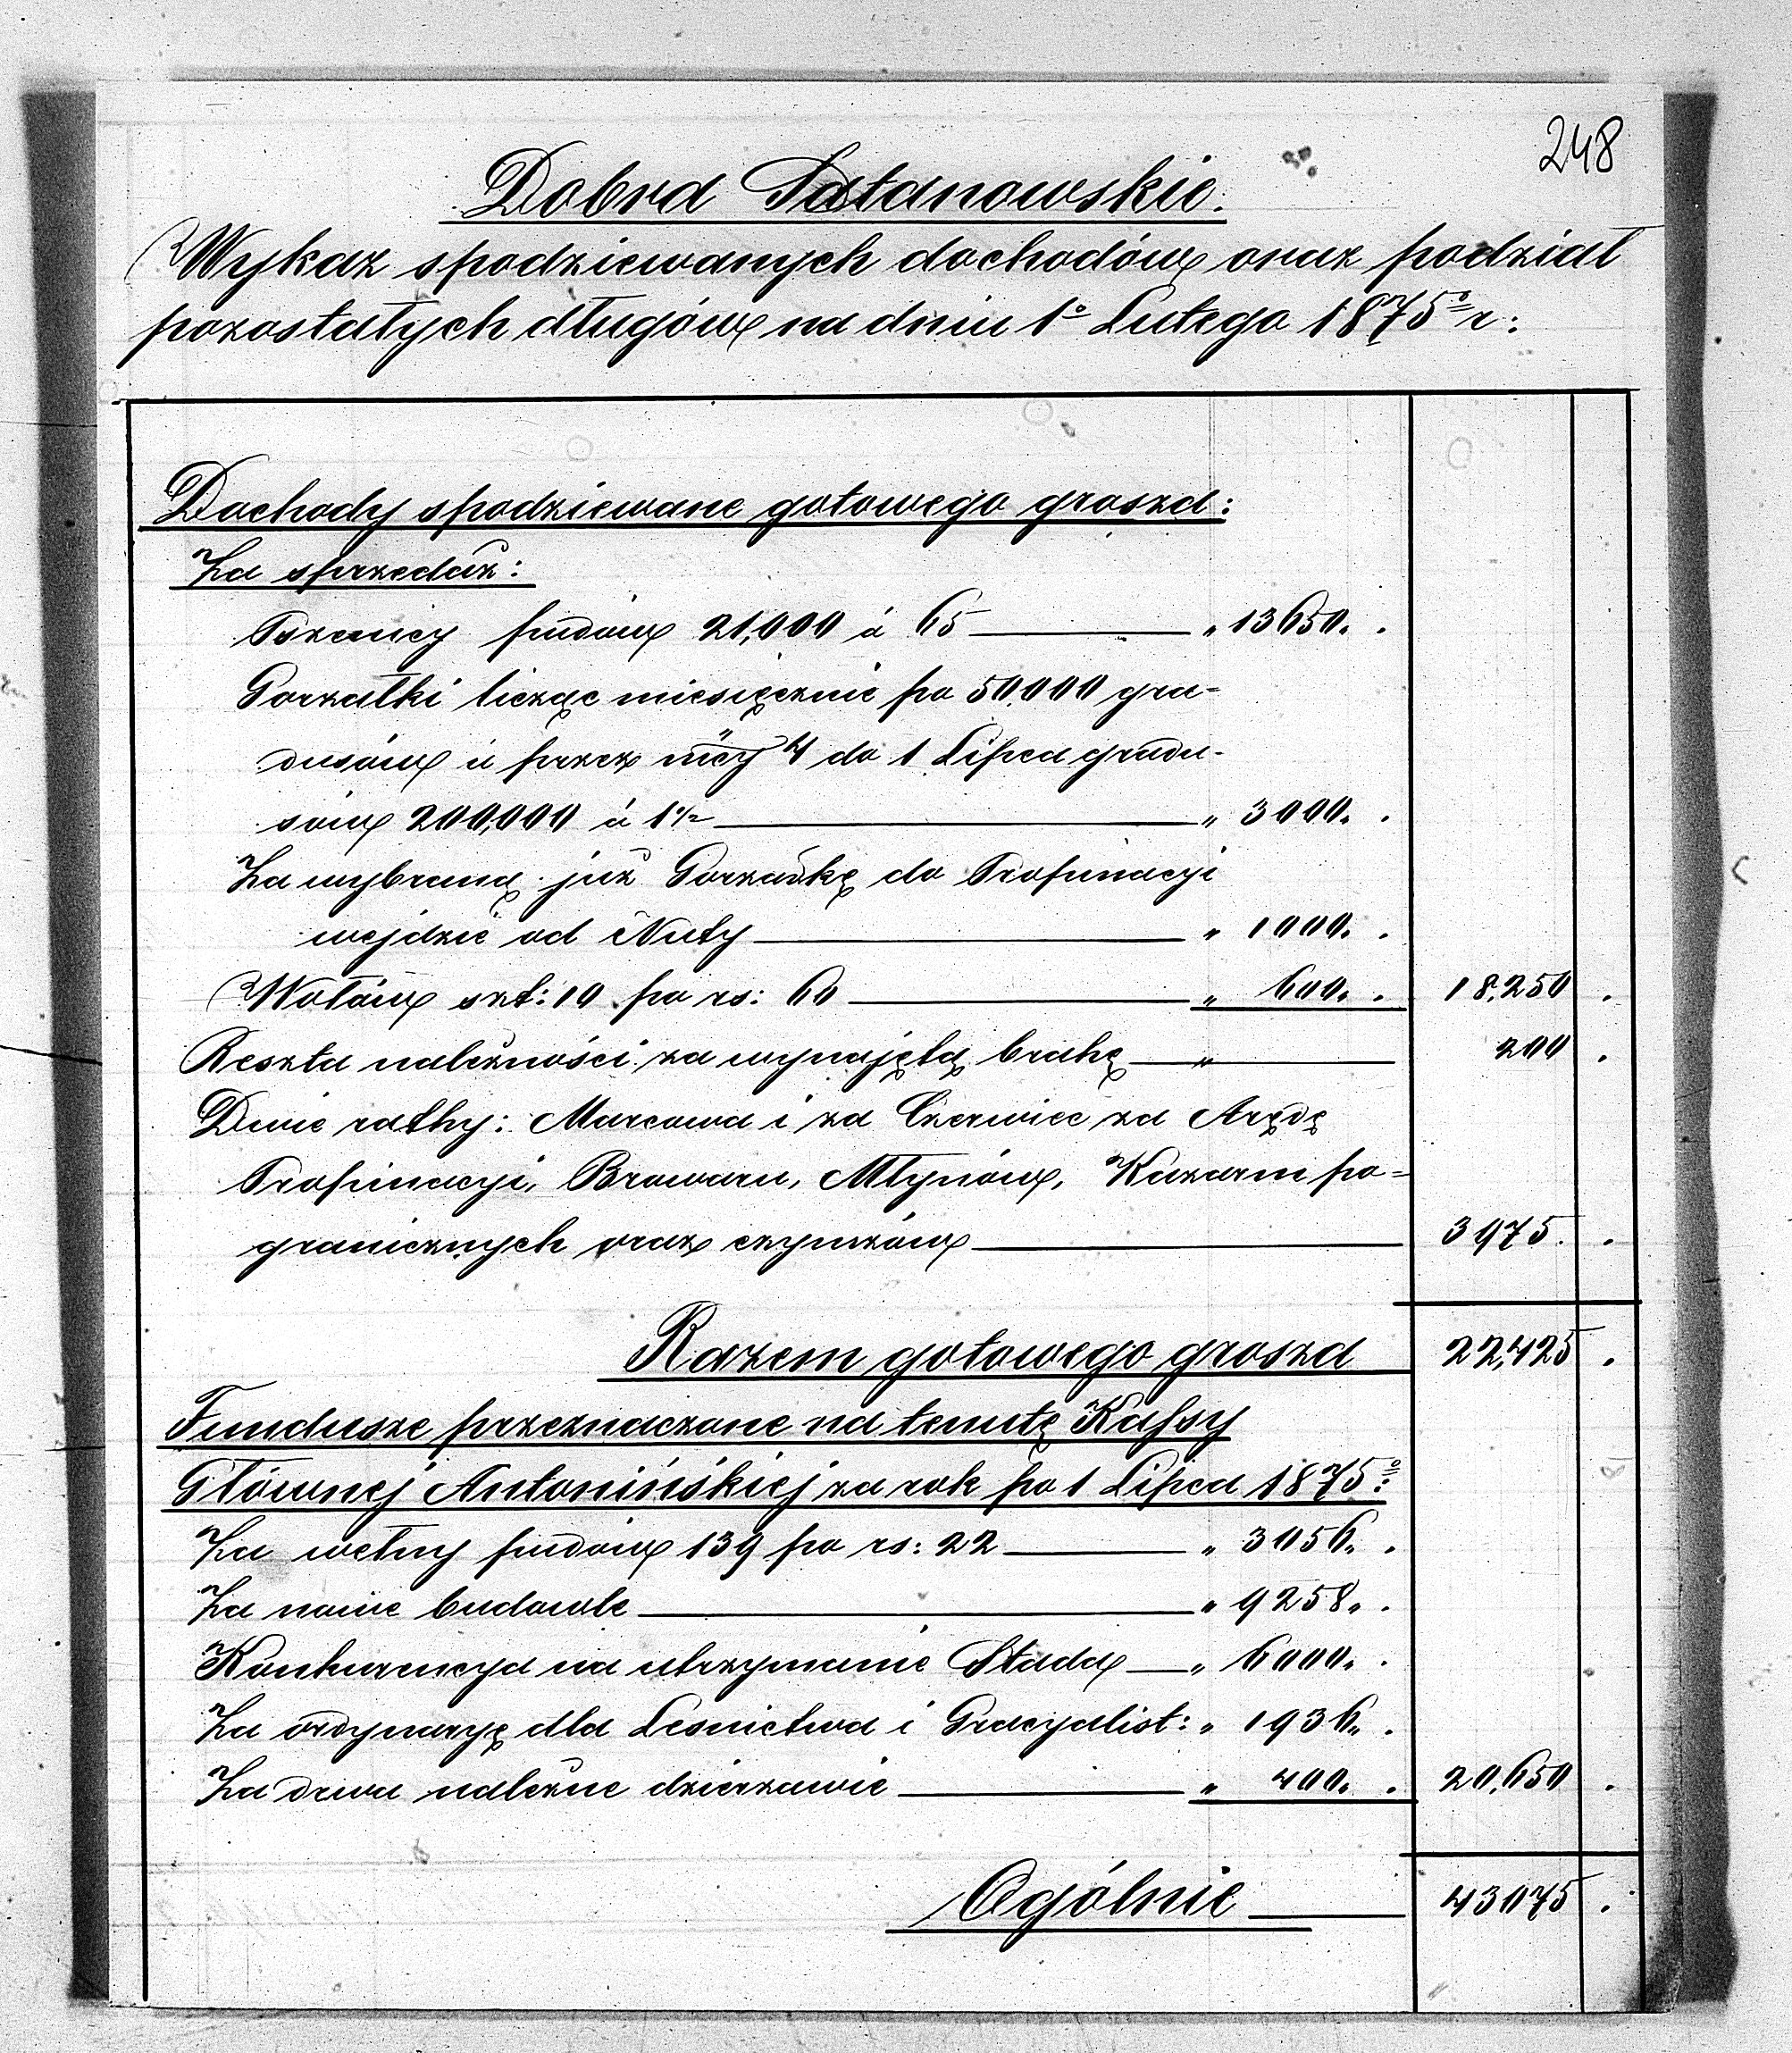 248
Dobra Satanowskie.
Wykaz spodziewanych dochodów oraz podział
pozostałych długów na dniu 1º Lutego 1875º r:
Dochody spodziewane gotowego grosza:
Za sprzedaż:
Pszenicy pudów 21,000 á 65 " 13650. .
Gorzałki licząc miesięcznie po 50,000 gra-
dusów á przez mcy 4 do 1 Lipca gradu-
sów 200,000 á 1½ " 3000. .
Za wybraną już Gorzałkę do Propinacyi
wejdzie od Nuty " 1000. .
Wołów szt: 10 po rs: 60 " 600. . 18,250 .
Reszta należności za wynajętą brahę " 200 .
Dwie rathy: Marcowa i za Czerwiec za Arędę
Propinacyi, Browaru, Młynów, Kazarm po=
granicznych oraz czynszów 3975. .
Razem gotowego grosza 22,425 .
Fundusze przeznaczone na tenutę Kassy
Głównej Antonińskiej za rok po 1 Lipca 1875º:
Za wełny pudów 139 po rs: 22 " 3056. .
Za nowe budowle " 9258. .
Konkurencya na utrzymanie Stada " 6000. .
Za ordynaryę dla Leśnictwa i Gracyalist: " 1936. .
Za drwa należne dzierzawie " 400. . 20,650 .
Ogólnie 43075 .